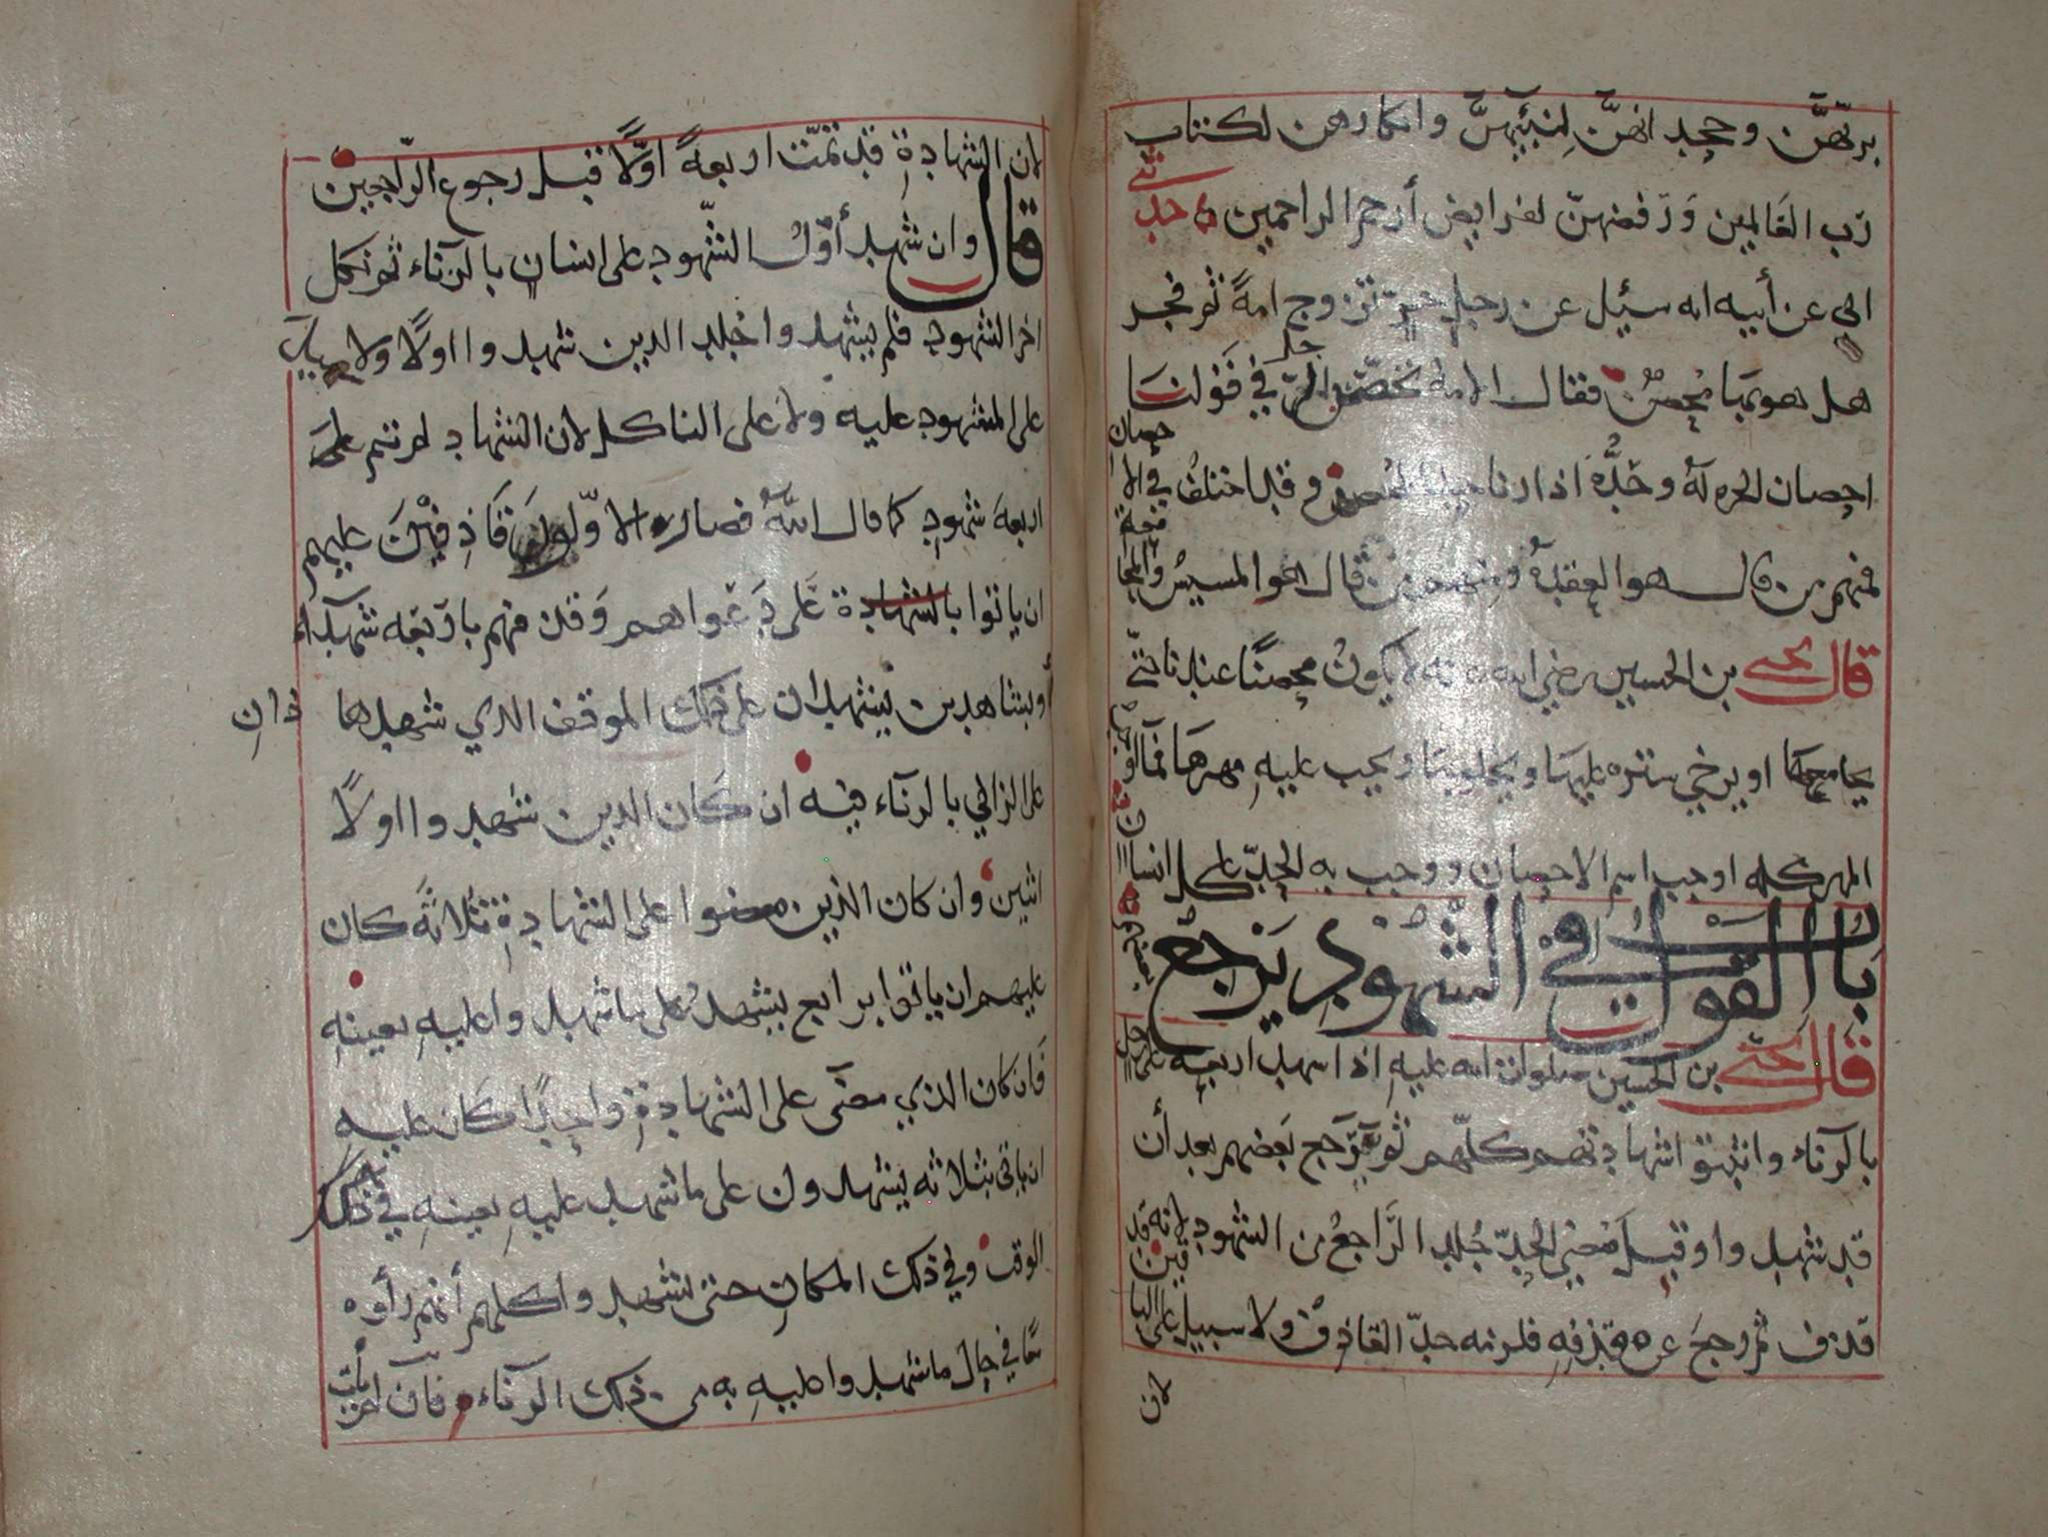 بربهنّ وجحدانهنّ لنبيّهنّ وانكارهن لكتاب
رب العَالمين وَرَفضهنّ لفرايض أرحم الراحمين حدثني
ابي عن أبيه انه سئيل عن رجلٍ حرٍّ تزوج امةً ثم فجر
هل هو بها مُحصنٌ فقال الامة تحصّن الحرّ في قَولنا
احصان الحره لهُ وحَدُّه اذا زنا حد المُحصن وقد اختلف في الاحصان
فمنهم من قال هو العقدة ومنهم من قال هو المسيسُ والمجامعة
قال يحيى بن الحسين رضي الله عنه لا يكونُ محصنًا عندنا حتّى
يجامعها او يرخي ستره عليها ويخلو بها ويجب عليهِ مهرها فما اوجب
المهر كله اوجب اسم الاحصان ووجب به الحدّ على كل انسان
باب القول في الشهود يَرجعُ بعضهم
قال يحيى بن الحسين صلوات الله عليهِ اذا شهد اربعه على رجل
بالزناء واثبتوا شهادتهم كلّهم ثم يَرجع بَعضهم بعد أن
قد شهدوا وقبل مُضي الحدّ جُلد الرَّاجعُ من الشهودِ لانه قد
قذف ثم رجعَ عن قذفهِ فلزمه حدّ القاذف ولا سبيل على الباقين
لان
لان الشهادةِ قد تمّت اربعةً اوّلًا قبل رجوع الرّاجعين
قال وان شهد أوّلُ الشّهود على انسان بالزناء ثم نكل
اخر الشهود فلم يشهد واجلد الذين شهدوا اولًا ولا سبيل
على المشهود عليه ولا على الناكل لان الشهاد لم تتم على
اربعة شهودٍ كما قال اللّهُ فصار الاوّلون قَاذِفيْنَ عليهم
ان ياتوا بالشهادة عَلى دَعواهم وَقذفهم بارَبعه شهدآء
أو بشاهدين يشهدان على ذلك الموقف الذي شهدها ذانِ
على الزاني بالزناء فيه ان كان الذين شهدوا اولًا
اثنين وان كان الذين مضوا على الشهادةِ ثلاثةً كان
عليهم ان ياتوا برابع يشهدُ على ما شهدوا عليهِ بعينهِ
فَان كان الذي مضى على الشهادةِ واحِدًا كان عليهِ
ان ياتي بثلاثه يشهدون على ما شهد عليهِ بعينهِ في ذلك
الوقت وفي ذلك المكانِ حتى يشهدوا كلهم أنهم رأوه
معًا في حال ما شهدوا عليهِ به من ذلك الزناء فان لم يات